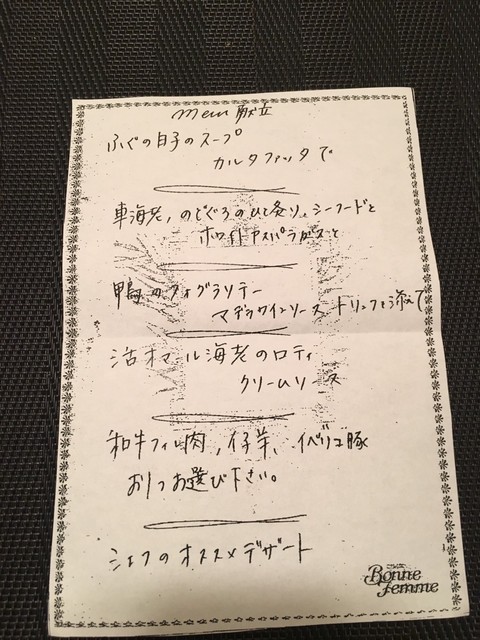 menu 献立
ふぐの白子のスープ
カルタファッタで
車海老、のどぐろのひと炙り。シーフードと
ホワイトアスパラガスと
鴨のフォグラソテー
マデラワインソース トリュフを添えて
活オマール海老のロティ
クリームソース
和牛フィレ肉、仔羊、イベリコ豚
お1つお選び下さい。
シェフのオススメデザート
Bonne
femme